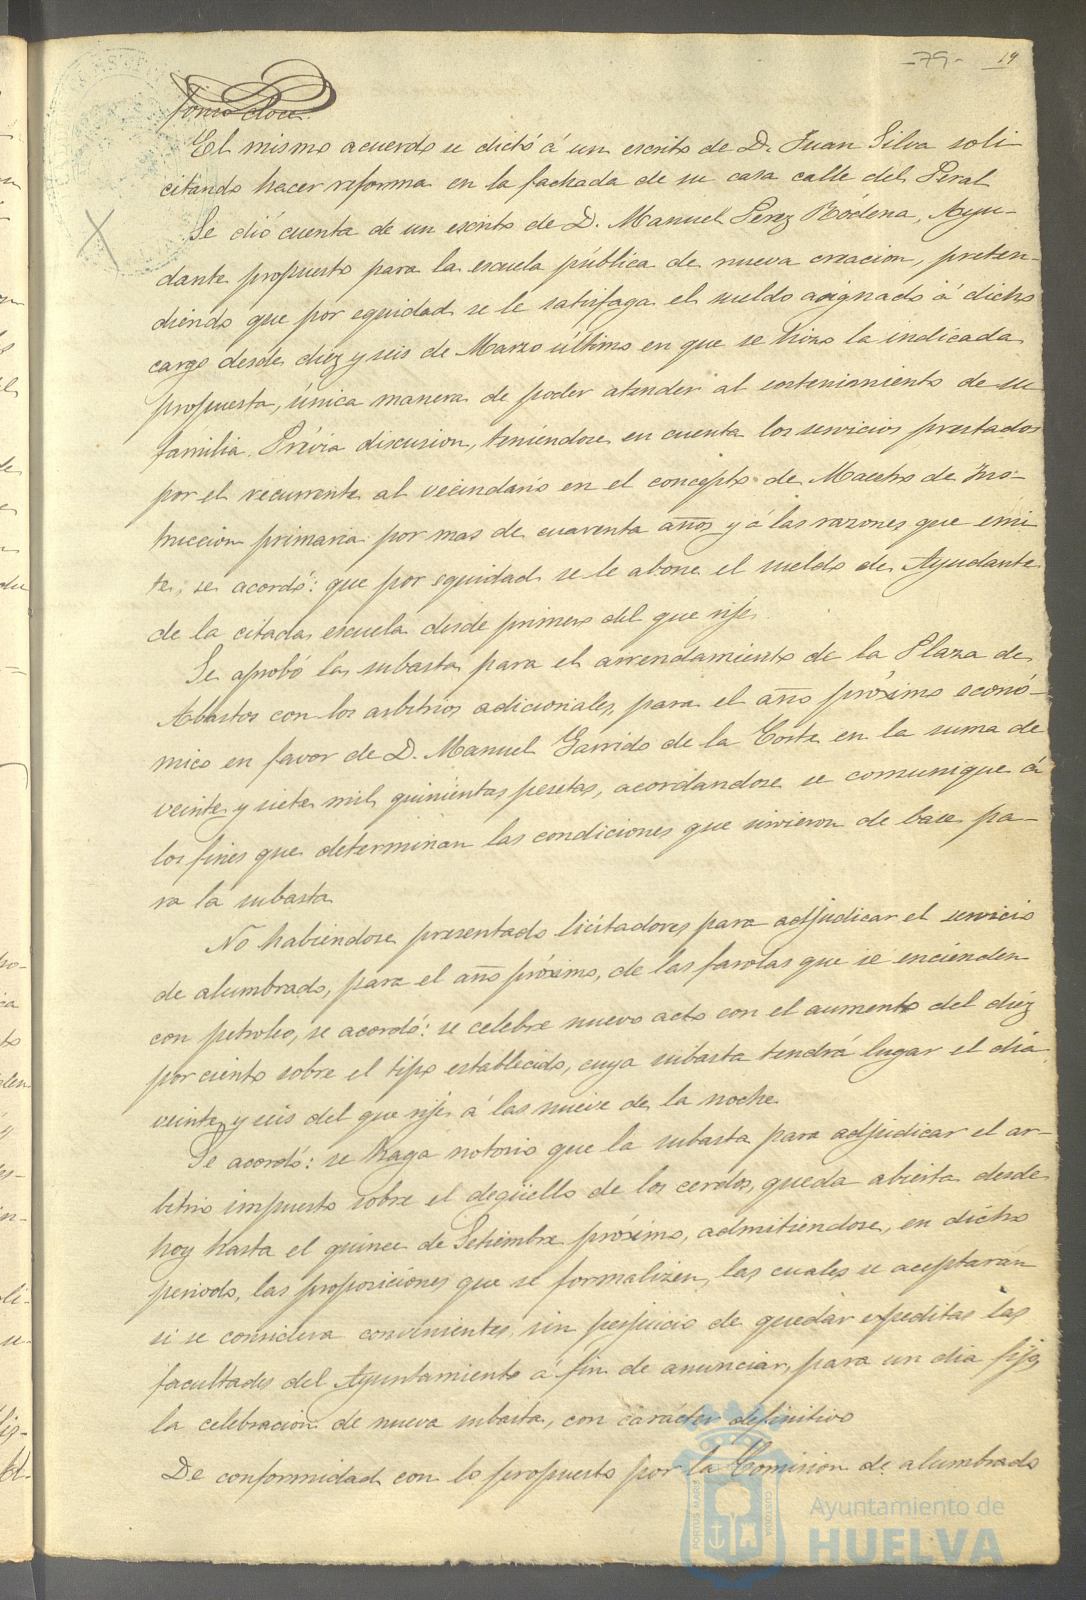 -79- 19
fonso doce.
El mismo acuerdo se dictó á un escrito de D. Juan Silva soli
citando hacer reforma en la fachada de su casa calle del Peral
Se dió cuenta de un escrito de D. Manuel Perez Ródena, Ayu-
dante propuesto para la escuela pública de nueva creacion, preten-
diendo que por equidad se le satisfaga el sueldo asignado á dicho
cargo desde diez y seis de Marzo último en que se hizo la indicada
propuesta, única manera de poder atender al sostenimiento de su
familia. Prévia discusion, teniéndose en cuenta los servicios prestados
por el recurrente al vecindario en el concepto de Maestro de Ins-
truccion primaria por mas de cuarenta años y á las razones que emi
te; se acordó: que por equidad se le abone el sueldo de Ayudante
de la citada escuela desde primero del que rije.
Se aprobó la subasta para el arrendamiento de la Plaza de
Abastos con los arbitrios adicionales, para el año próximo econó-
mico en favor de D. Manuel Garrido de la Corte en la suma de
veinte y siete mil quinientas pesetas, acordandose se comunique á
los fines que determinan las condiciones que sirvieron de base pa-
ra la subasta
No habiendose presentado licitadores para adjudicar el servicio
de alumbrado, para el año próximo, de las farolas que se encienden
con petroleo, se acordó: se celebre nuevo acto con el aumento del diez
por ciento sobre el tipo establecido, cuya subasta tendrá lugar el dia
veinte y seis del que rije á las nueve de la noche.
Se acordó: se haga notorio que la subasta para adjudicar el ar-
bitrio impuesto sobre el degüello de los cerdos, queda abierta desde
hoy hasta el quince de Setiembre próximo, admitiendose, en dicho
periodo, las proposiciones que se formalizen, las cuales se aceptarán
si se considera convenientes, sin perjuicio de quedar espeditas las
facultades del Ayuntamiento á fin de anunciar, para un dia fijo,
la celebracion de nueva subasta, con carácter definitivo
De conformidad con lo propuesto por la Comision de alumbrado
PORTUS MARIS
CUSTODIA
Ayuntamiento de
HUELVA